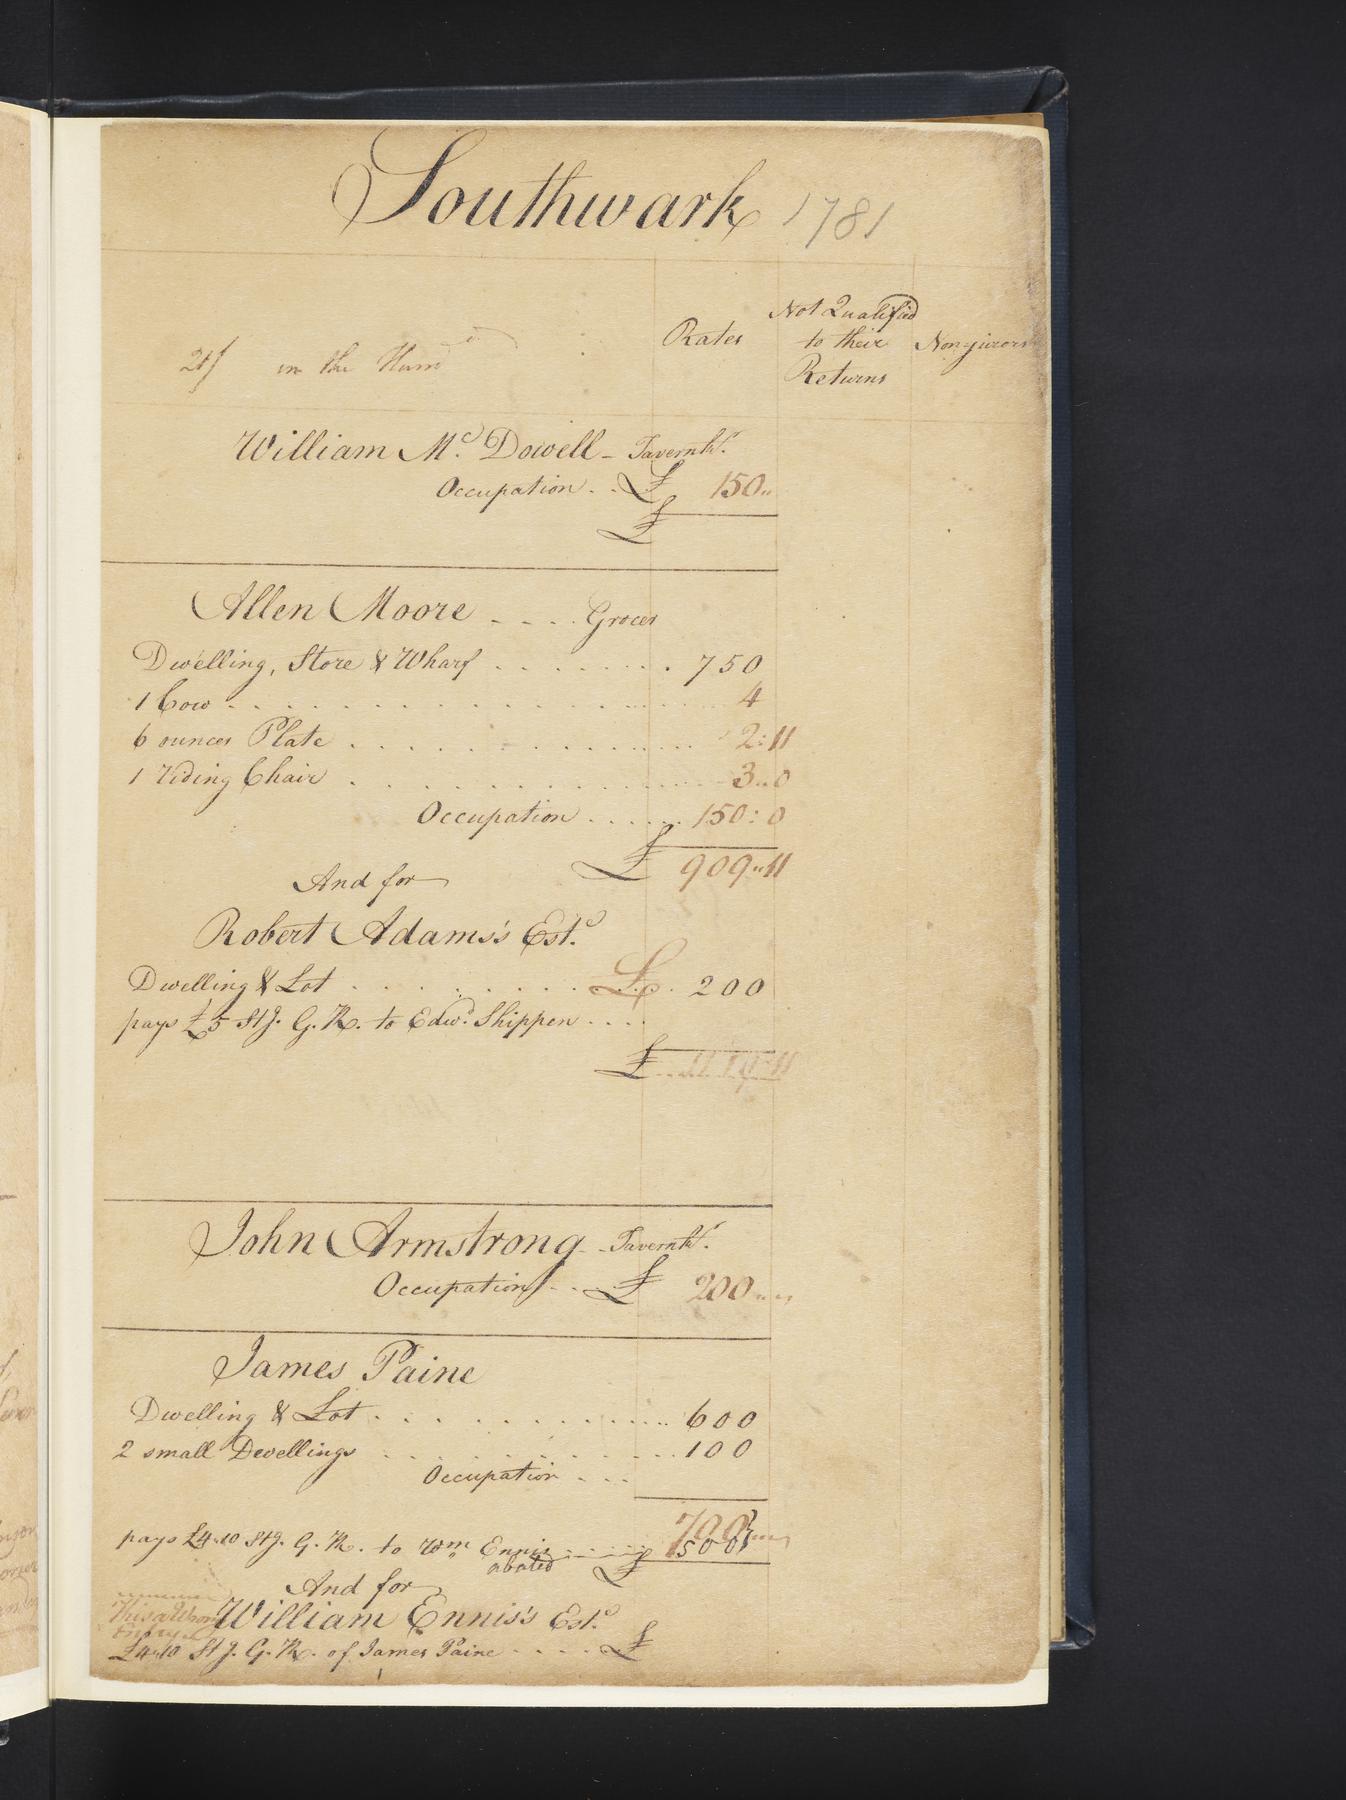 Southwark 1781
Rates
Not Qualified
to their
Returns
Nonjurors
21/ in the Hund
William Mc. Dowell - Tavernkr.
Occupation . . £ 150 "
£
Allen Moore - - - . Grocer
Dwelling, Store & Wharf . . . . . . . . 750
1 Cow . . . . . . . . . . . . . . . . . . 4
6 ounces Plate . . . . . . . . . . . . . . . 2:11
1 riding Chair . . . . . . . . . . . . . . . 3..0
Occupation . . . . . . 150:0
£ 909"11
And for
Robert Adams's Este.
Dwelling & Lot . . . . . . . . . £ . 200
pays £5 Stg. G. R. to Edwd. Shippen . . . .
£
John Armstrong - Tavernkr.
Occupation . . . £ 200
James Paine
Dwelling & Lot . . . . . . . . . . . 600
2 small Dwellings . . . . . . . . . . 100
Occupation . . .
700
pays £4.10 Stg. G. R. to Wm Ennis . . . . 500
abated £
And for
This a Wrong
Entry
William Ennis's Este.
£4.10 Stg. G. R. of James Paine . . . . £